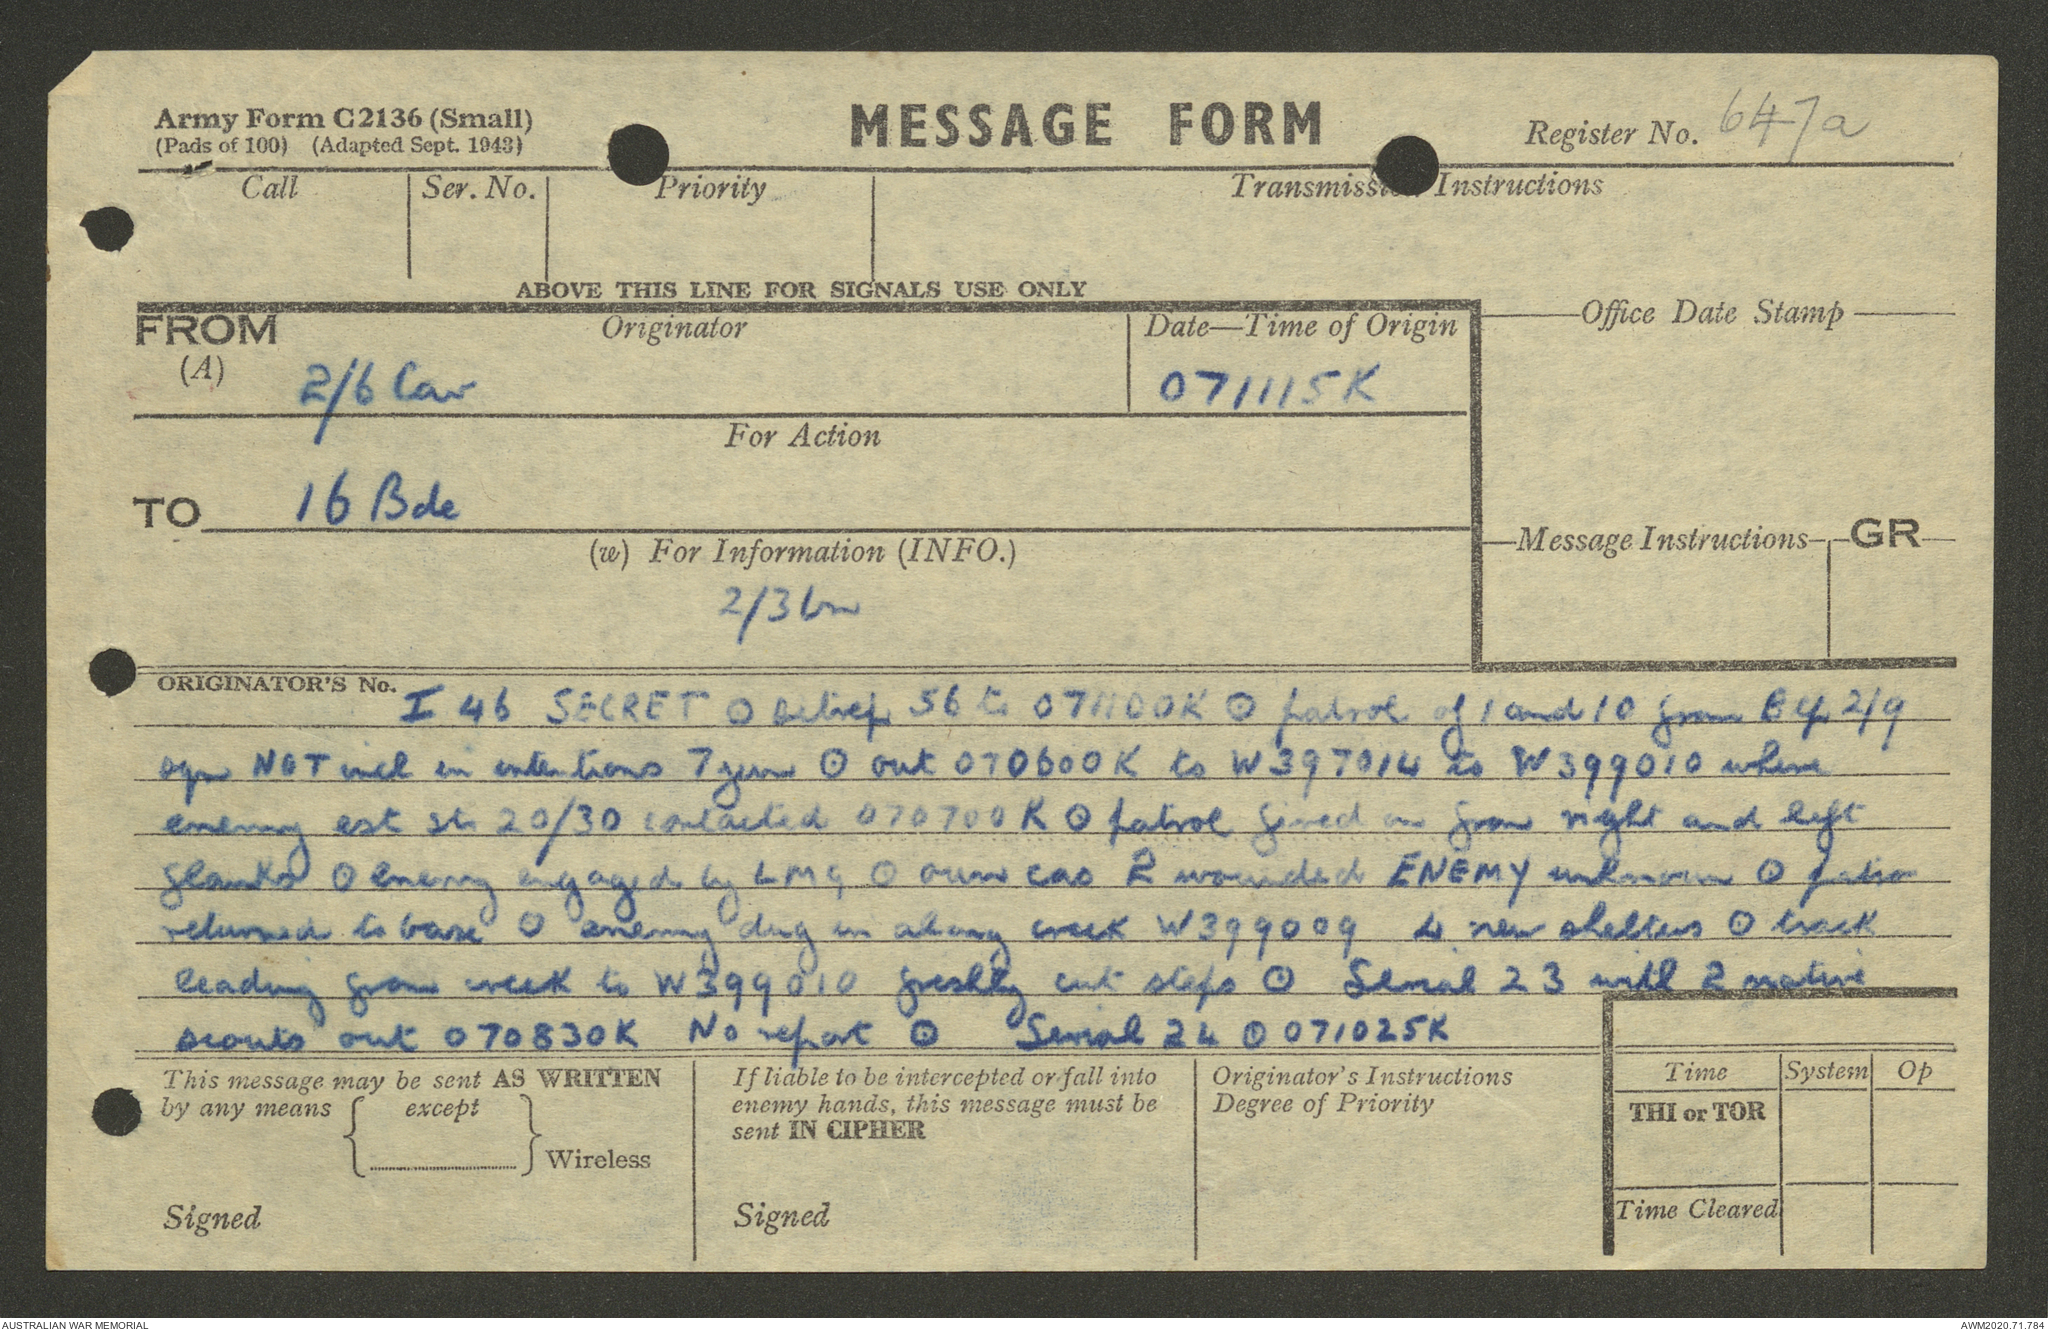 Army Form C2136 (Small)
(Pads of 100) (Adapted Sept. 1943)
MESSAGE FORM
Register No. 647a
Call Ser. No. Priority Transmission Instructions
ABOVE THIS LINE FOR SIGNALS USE ONLY
FROM Originator Date—Time of Origin Office Date Stamp
(A) 2/6 Cav 071115K
For Action
TO 16 Bde
Message Instructions GR
(w) For Information (INFO.)
2/3 bn
ORIGINATOR'S No.
I 46 SECRET ⊙ Sitrep 56 to 071100K ⊙ patrol of 1 and 10 from B Cp 2/9
NOT incl in intentions 7 ⊙ out 070600K to W397014 to W399010 where
enemy est str 20/30 contacted 070700K ⊙ patrol fired on from right and left
flanks ⊙ enemy engaged by LMG ⊙ own cas 2 wounded ENEMY unknown ⊙ patrol
returned to base ⊙ enemy dug in along creek W399009 4 new shelters ⊙ track
leading from creek to W399010 freshly cut steps ⊙ Serial 23 with 2 native
scouts out 070830K No report ⊙ Serial 24 ⊙ 071025K
This message may be sent AS WRITTEN
by any means except
Wireless
Signed
If liable to be intercepted or fall into
enemy hands, this message must be
sent IN CIPHER
Signed
Originator's Instructions
Degree of Priority
Time System Op
THI or TOR
Time Cleared
AUSTRALIAN WAR MEMORIAL
AWM2020.71.784